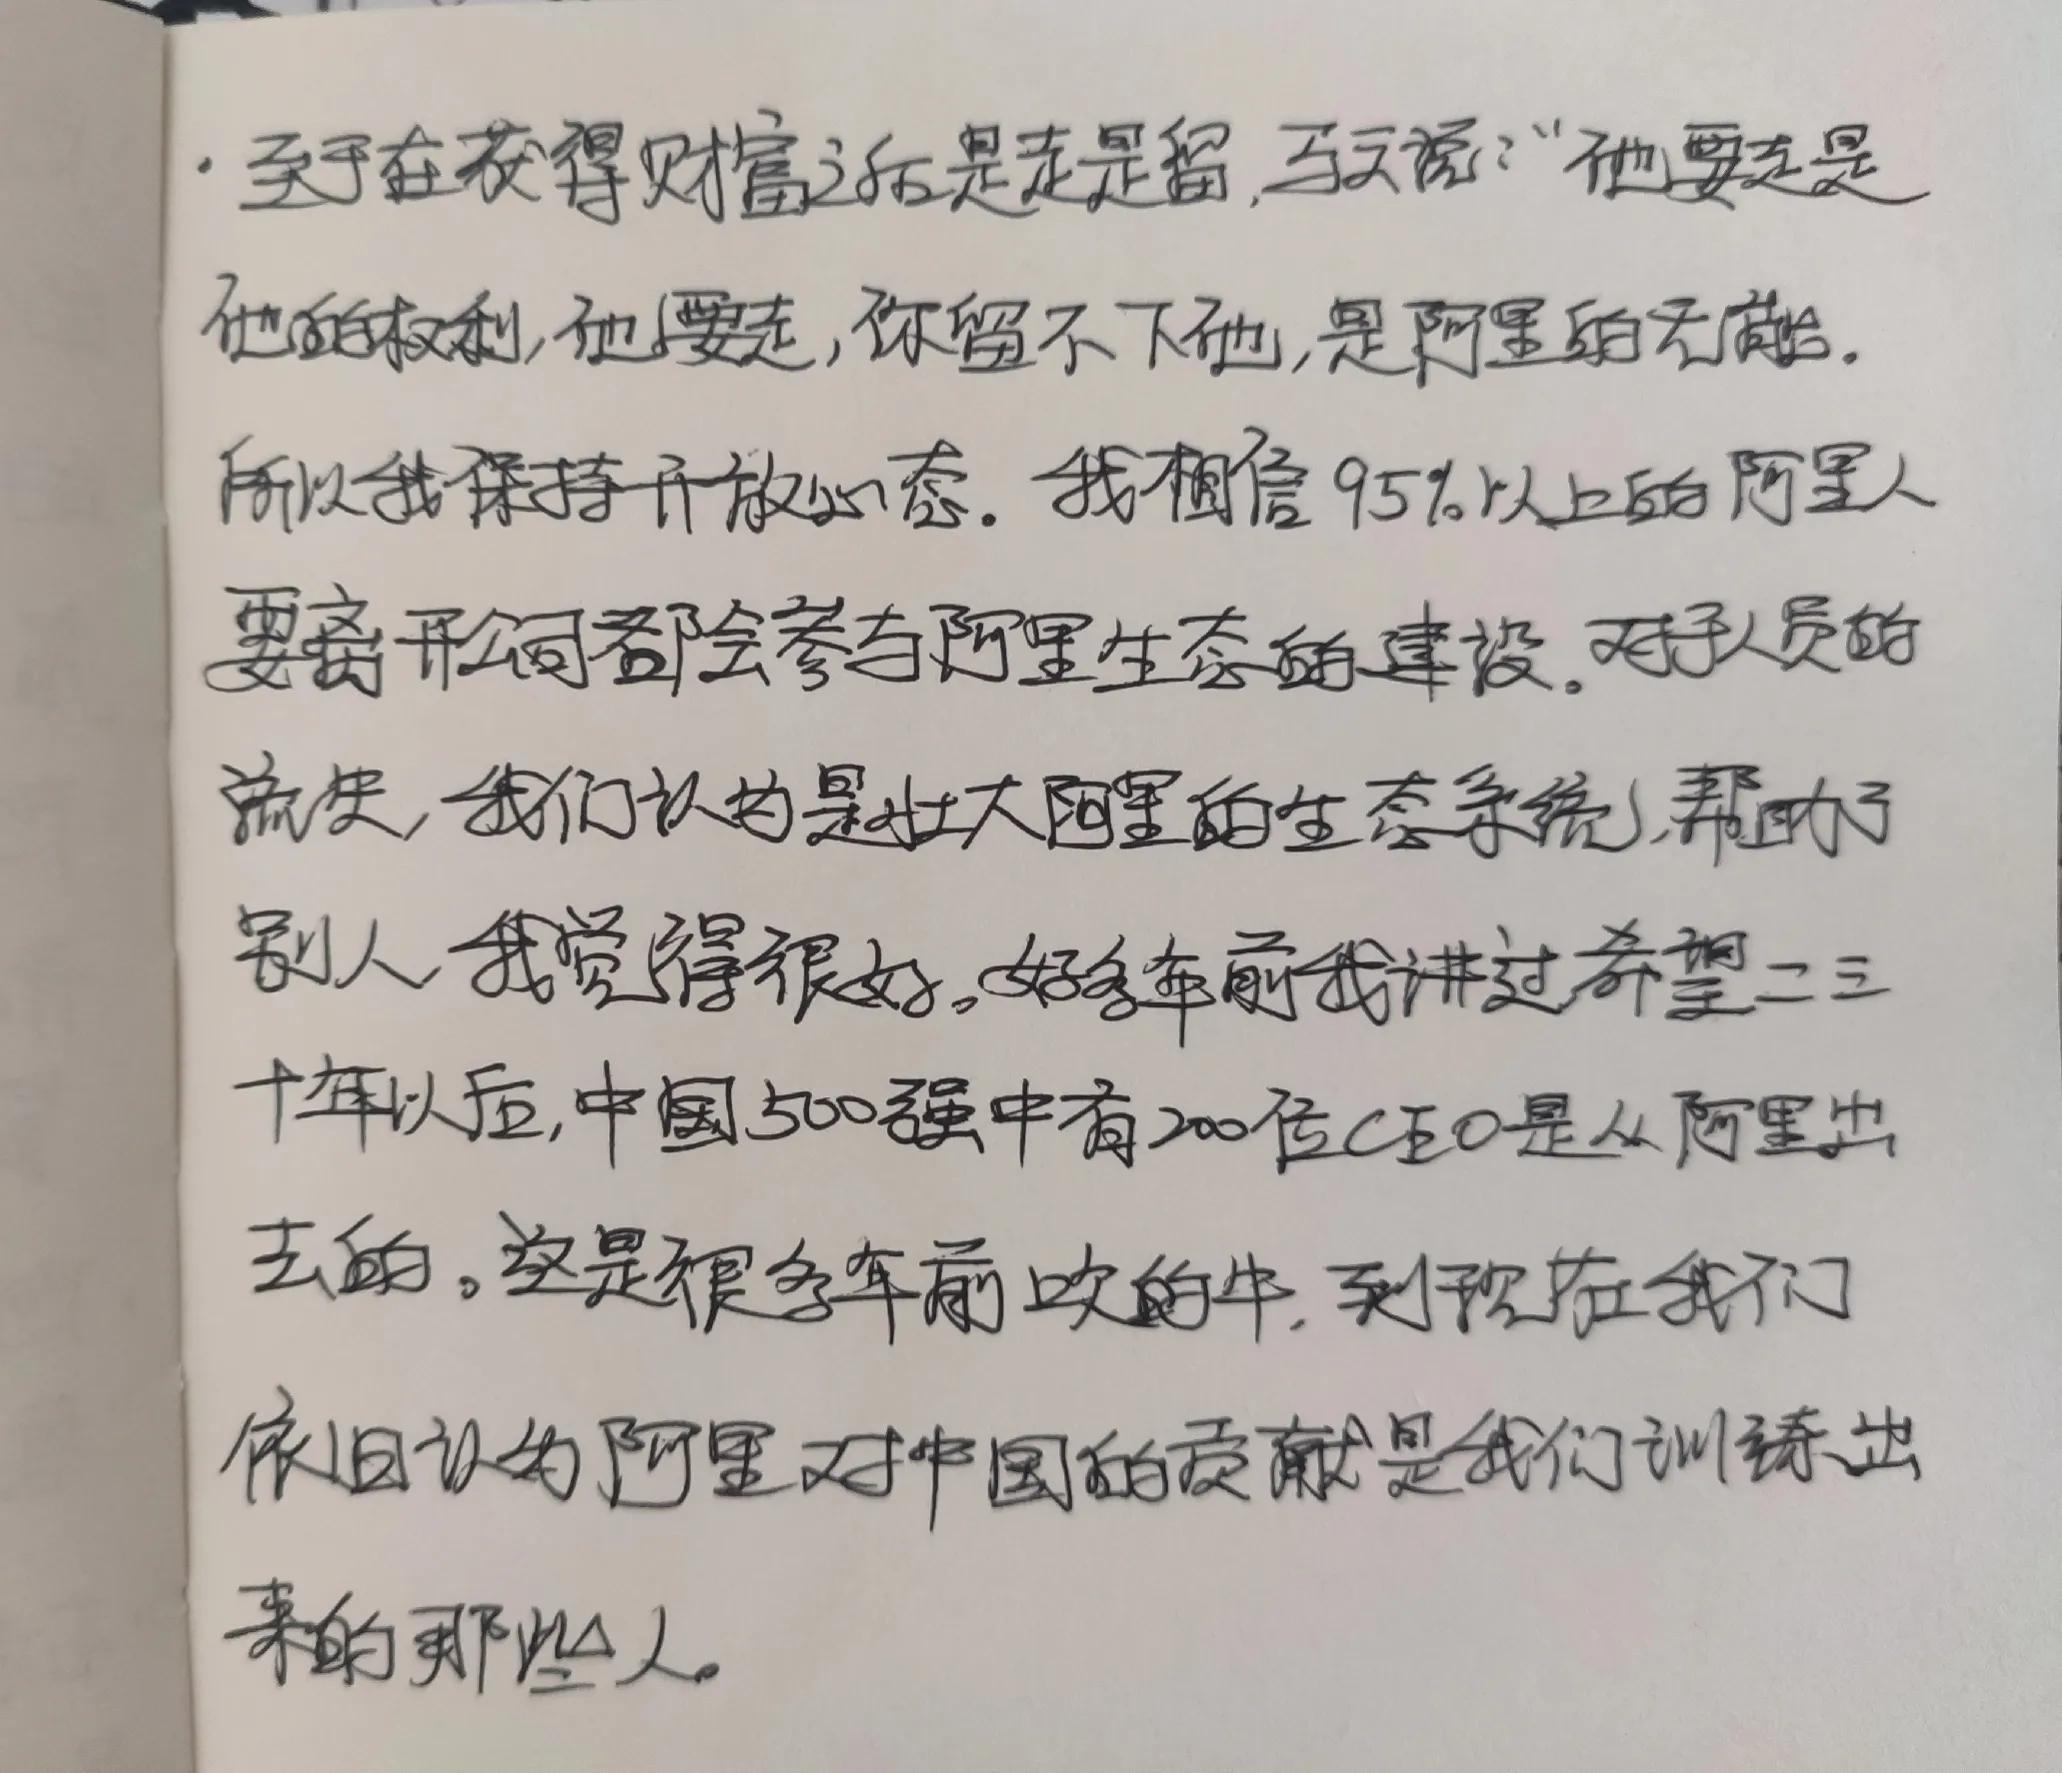 ·至于在获得财富之后是走是留,马云说:“他要走是
他的权利,他要走,你留不下他,是阿里的无能.
所以我保持开放心态.我相信95%以上的阿里人
要离开公司都会参与阿里生态的建设。对于人员的
流失,我们认为是壮大阿里的生态系统,帮助了
别人,我觉得很好。好多年前我讲过希望二三
十年以后,中国500强中有200位CEO是从阿里出
去的。这是很多年前吹的牛.到现在我们
依旧认为阿里对中国的贡献是我们训练出
来的那些人。